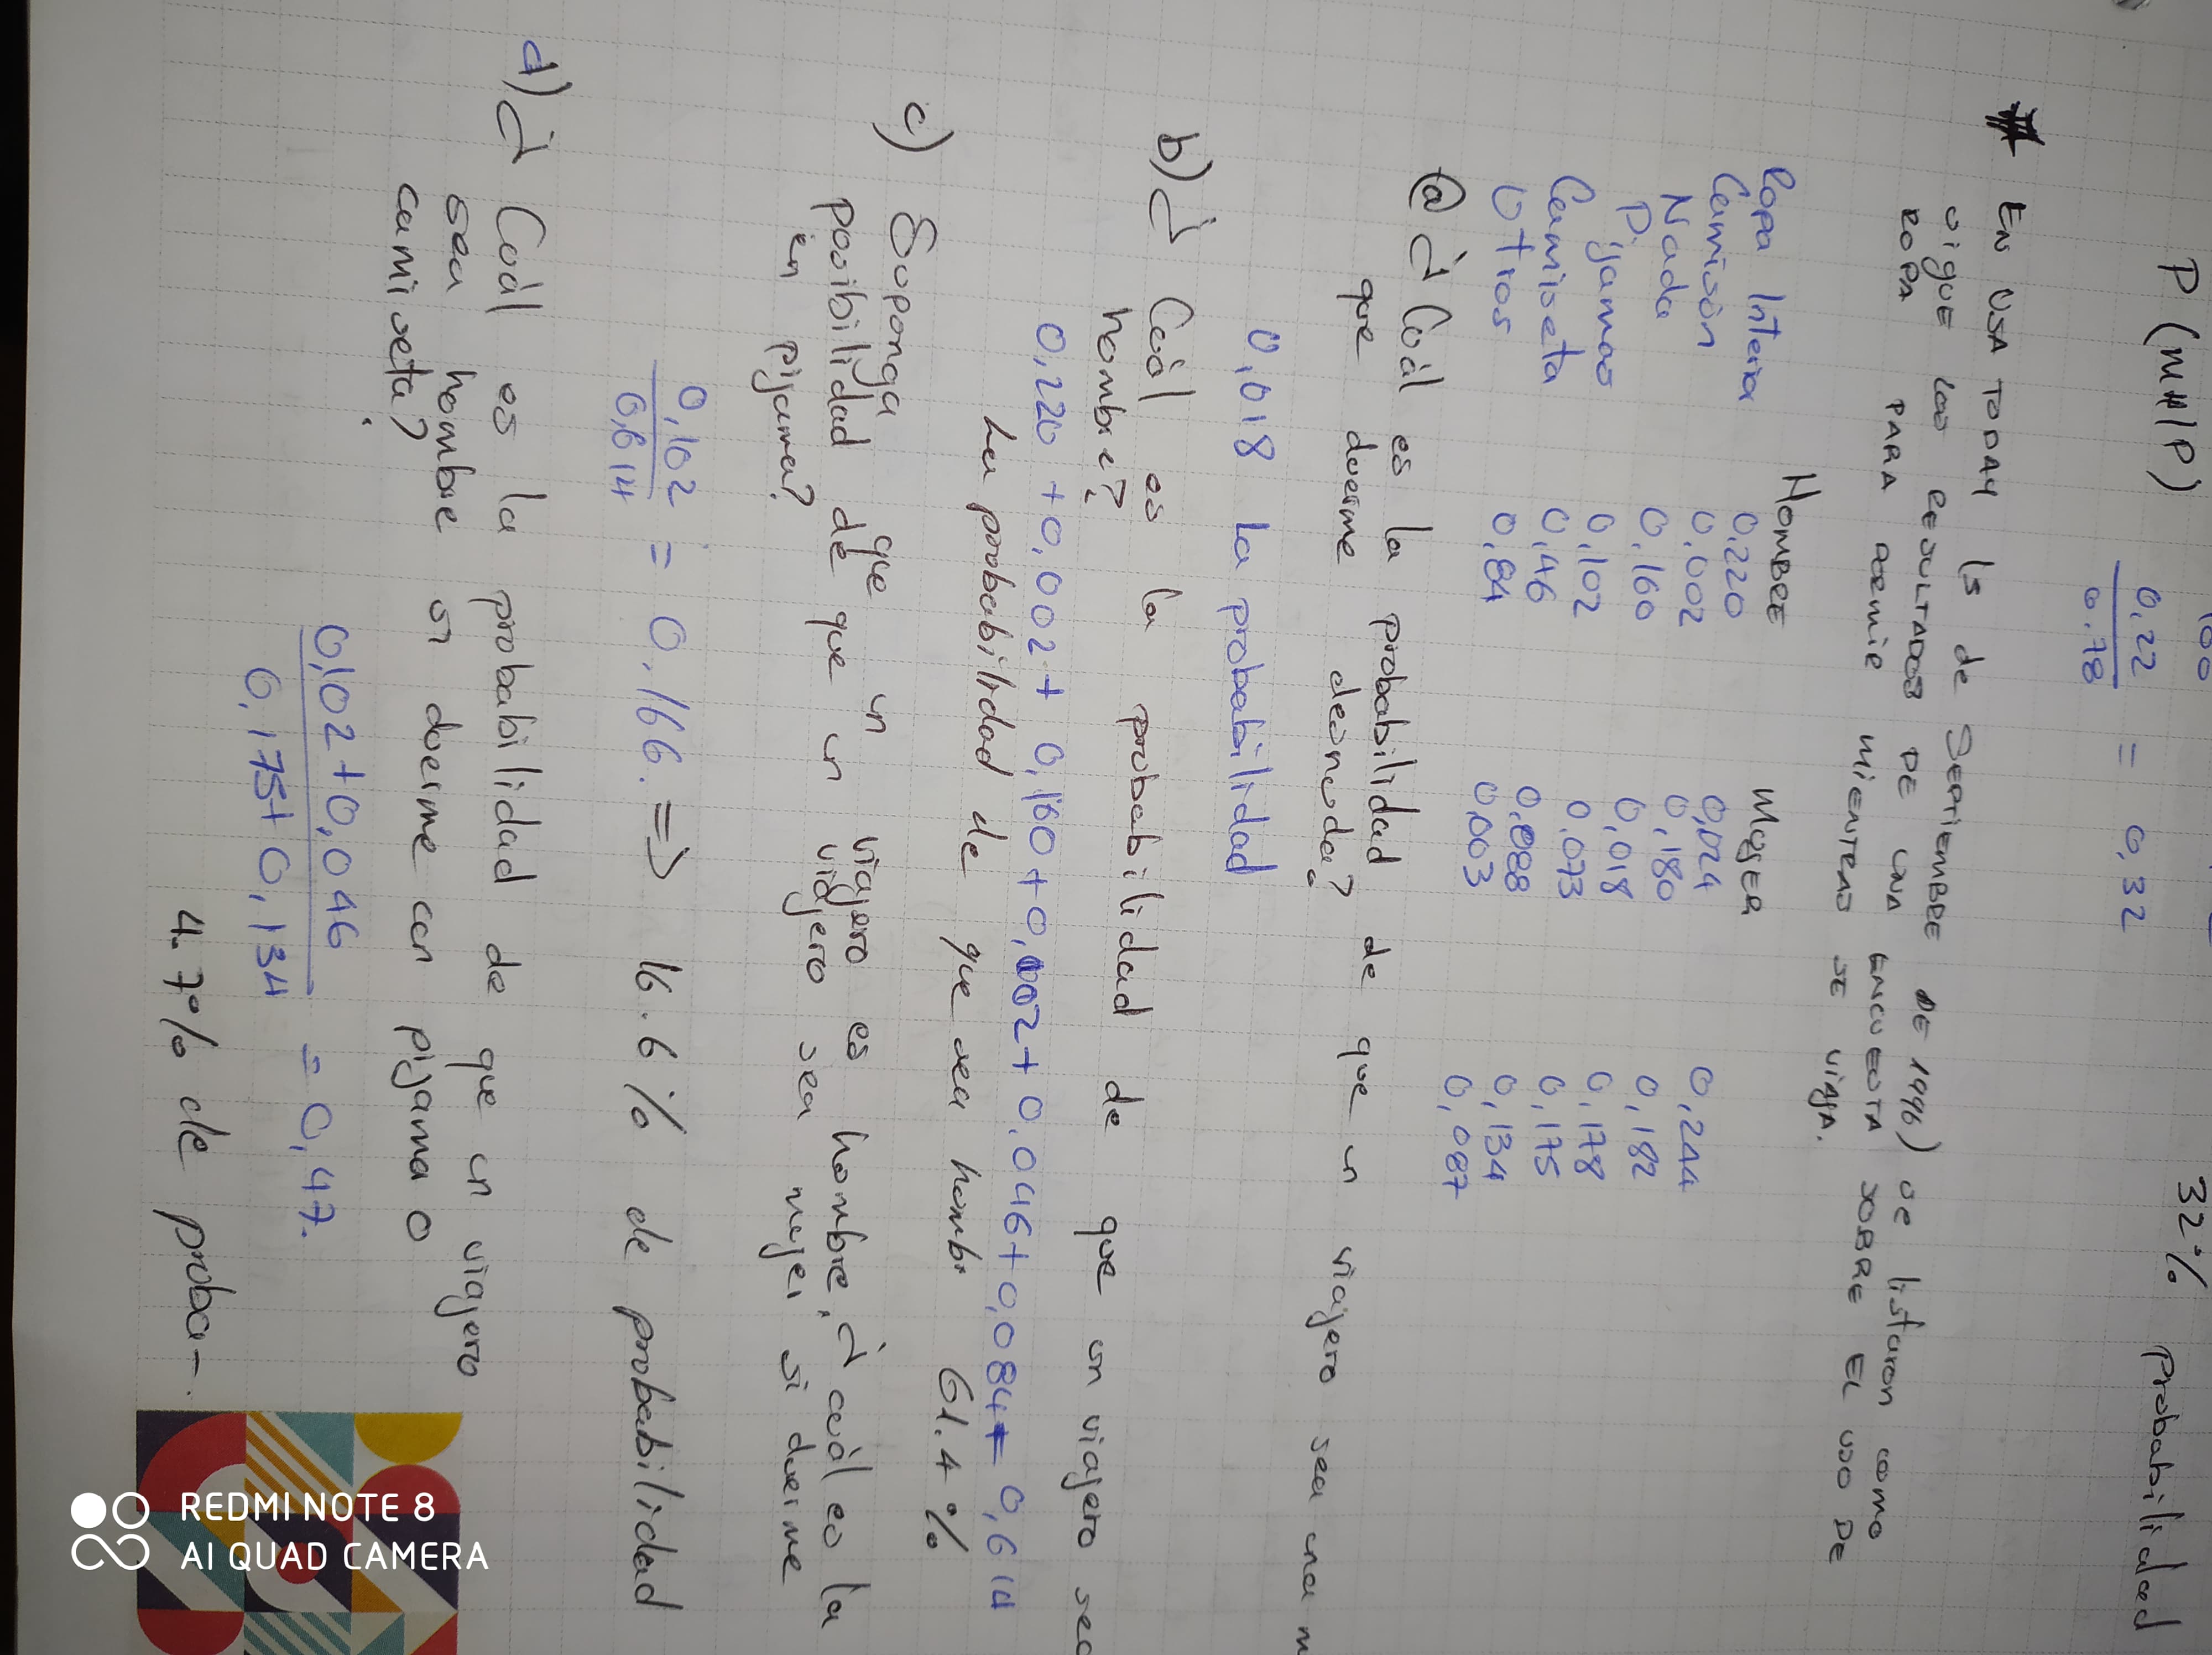 100
P(MH|P) 0,22 / 0,78 = 0,32 32% Probabilidad
* EN USA TODAY 15 de SEPTIEMBRE DE 1996) se listaron como
sigue los RESULTADOS DE UNA ENCUESTA SOBRE EL USO DE
ROPA PARA DORMIR MIENTRAS SE VIAJA.
HOMBRE MUJER
Ropa Interior 0,220 0,024 0,244
Camisón 0,002 0,180 0,182
Nada 0,160 0,018 0,178
Pijamas 0,102 0,073 0,175
Camiseta 0,46 0,088 0,134
Otros 0,84 0,003 0,087
a) ¿Cuál es la probabilidad de que un viajero sea una m
que duerme desnuda?
0,018 La probabilidad
b) ¿Cuál es la probabilidad de que un viajero sea
hombre?
0,220 + 0,002 + 0,160 + 0,002 + 0,046 + 0,084 = 0,614
La probabilidad de que sea hombr 61.4%
c) Suponga que un viajero es hombre, ¿cuál es la
posibilidad de que un viajero sea mujer si duerme
en pijama?
0,102 / 0,614 = 0,166. => 16.6% de probabilidad
d) ¿Cuál es la probabilidad de que un viajero
sea hombre si duerme con pijama o
camiseta?
0,102 + 0,046 / 0,175 + 0,134 = 0,47.
4.7% de proba-.
REDMI NOTE 8
AI QUAD CAMERA